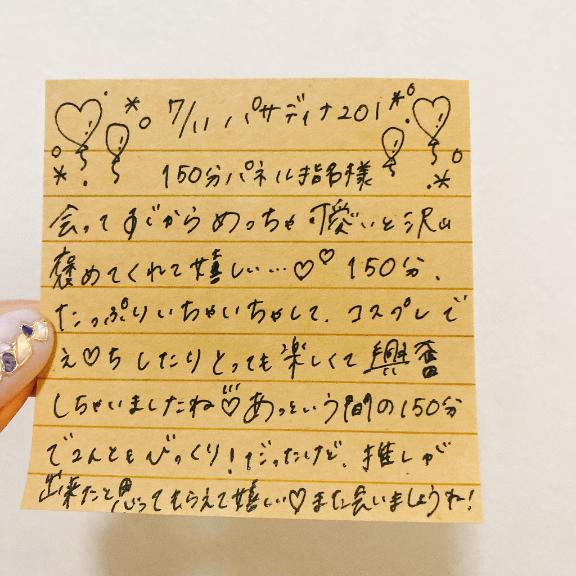 7/11 パサディナ201
150分パネル指名様
会ってすぐからめっちゃ可愛いと沢山
褒めてくれて嬉しい…♡♡ 150分、
たっぷりいちゃいちゃして、コスプレで
え♡ちしたりとっても楽しくて興奮
しちゃいましたね♡あっという間の150分
でびっくり!だったけど、推しが
出来たと思ってもらえて嬉しい♡また会いましょうね!